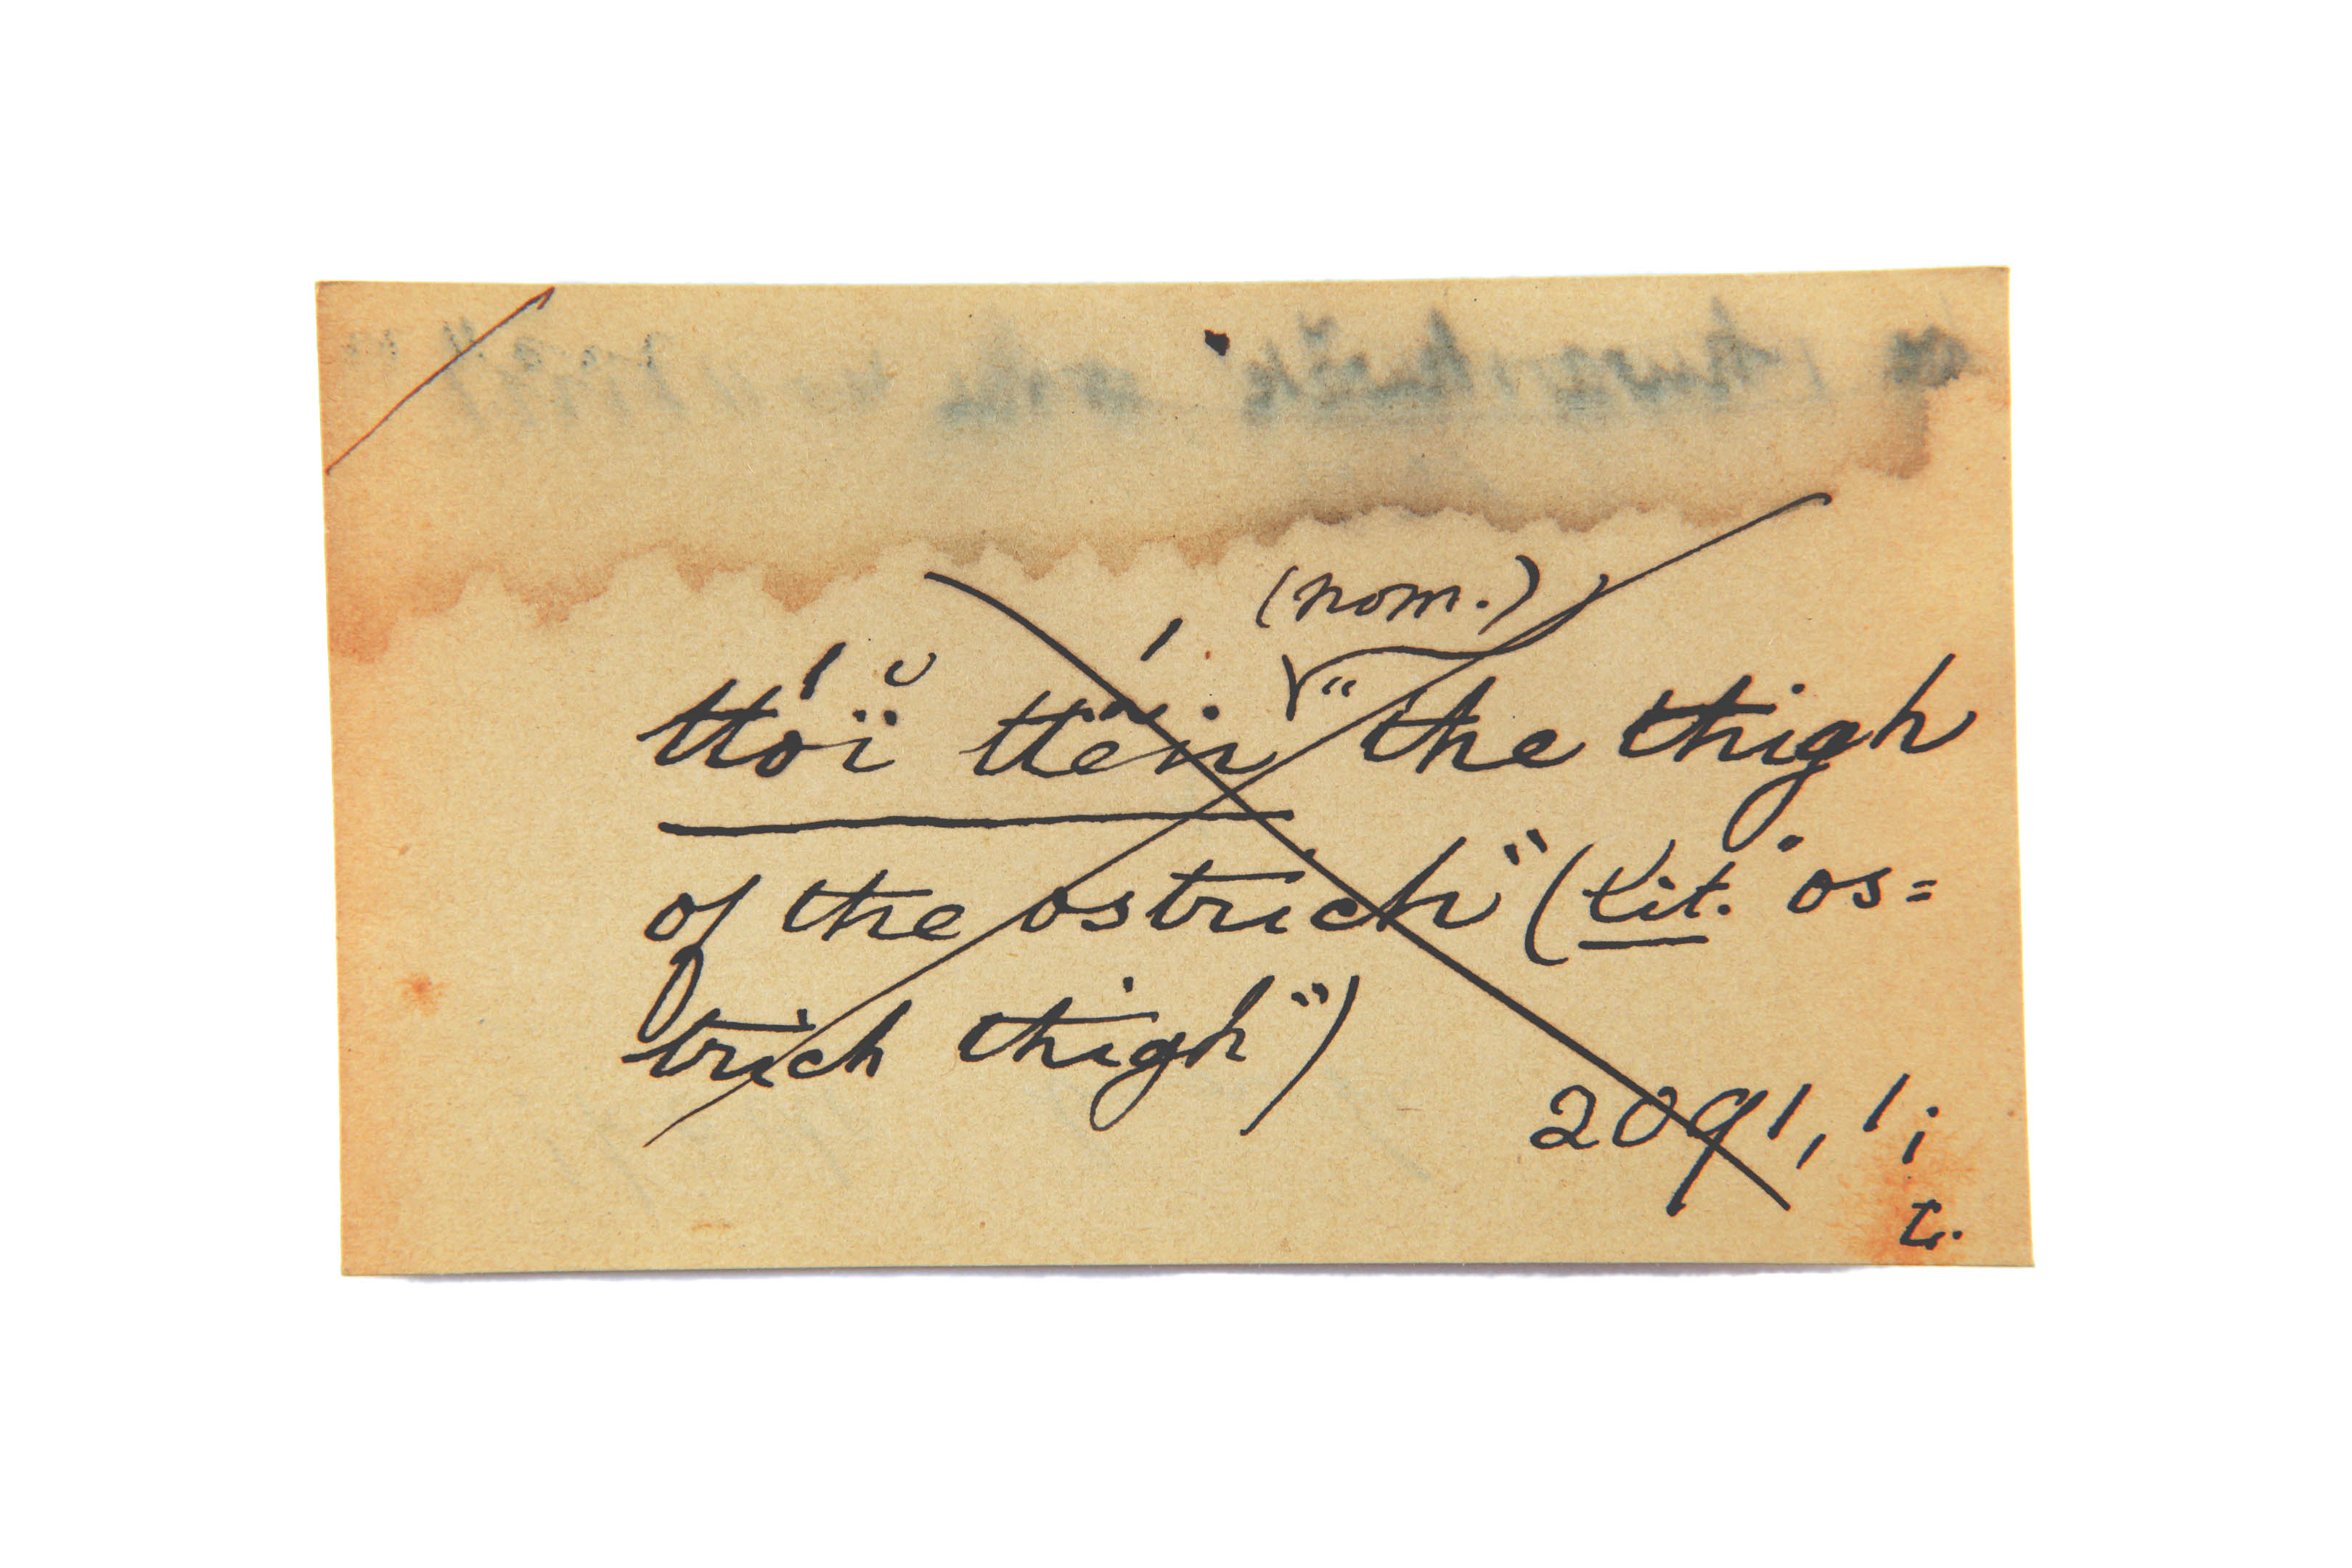 (nom.)
ttóï ttẽn "the thigh
of the ostrich" (Lit. os=
trich thigh")
2091, 1;
L.